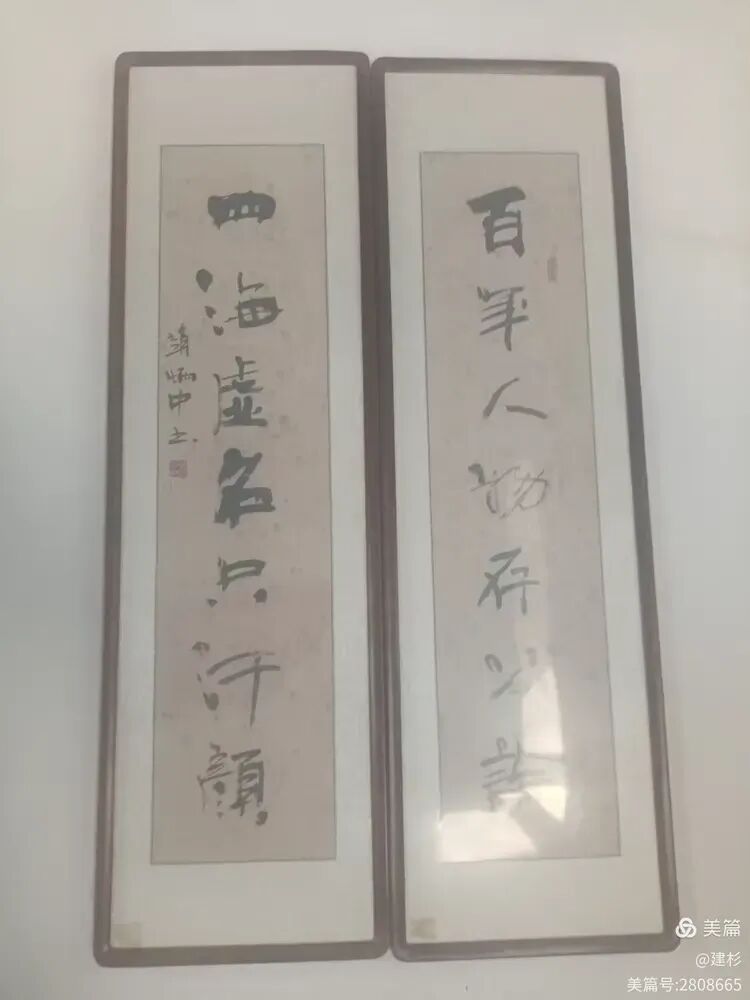 百年人物存公論
四海虚名只汗顔
美篇
@建杉
美篇号:2808665